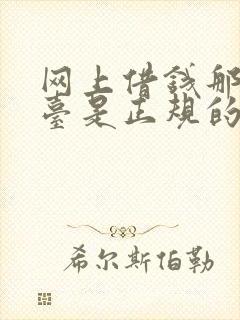 网上借錢那
臺是正規的
希尔斯伯勒